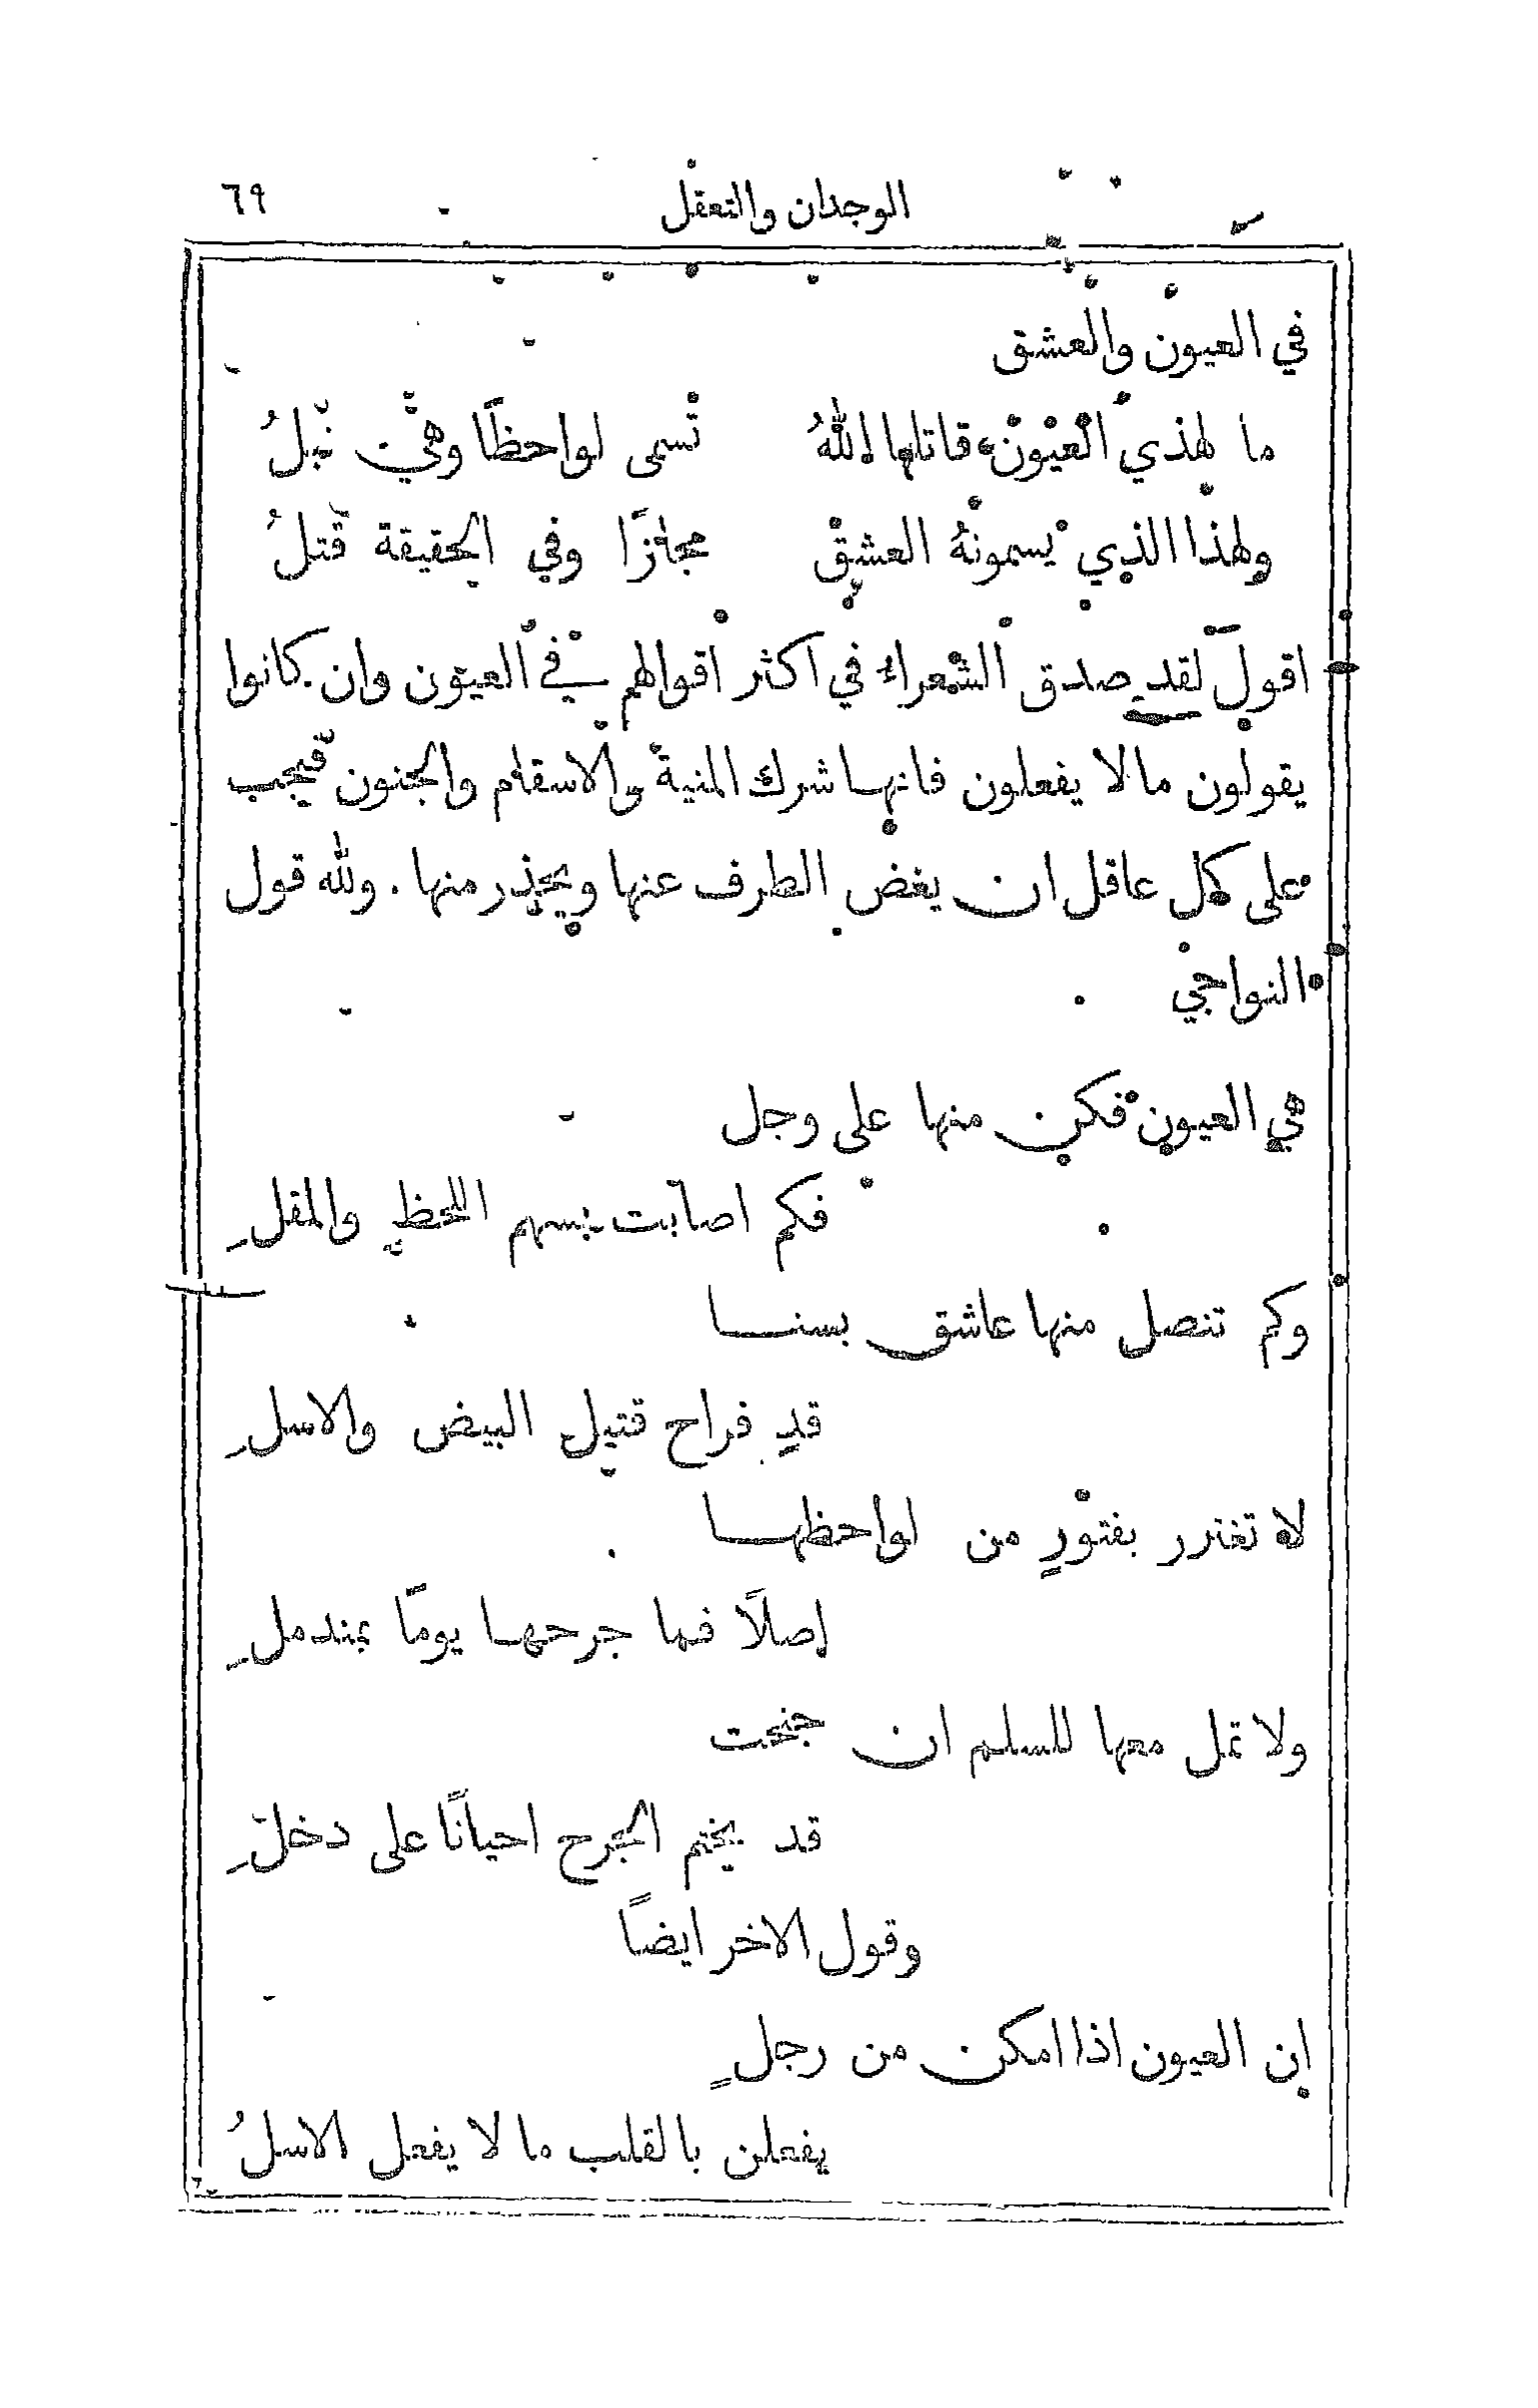 الوجدان والتعقل ٦٩
في العيون والعشق
ما لهذي العيون قاتلها اللهُ تسمى لواحظًا وهي نبلُ
ولهذا الذي يسمونهُ العشق مجازًا وفي الحقيقة قتلُ
اقول لقد صدق الشعراء في اكثر اقوالهم في العيون وان كانوا
يقولون ما لا يفعلون فانها شرك المنية والاسقام والجنون فيجب
على كل عاقل ان يغض الطرف عنها ويحذر منها . ولله قول
النواجي
هي العيون فكن منها على وجل
فكم اصابت بسهم اللحظ والمقلِ
وكم تنصل منها عاشق بسنا
قدٍ فراح قتيل البيض والاسلِ
لا تغترر بفتورٍ من لواحظها
اصلًا فما جرحها يومًا بمندملِ
ولا تمل معها للسلم ان جنحت
قد يختم الجرح احيانًا على دخلِ
وقول الاخر ايضًا
ان العيون اذا امكن من رجلٍ
يفعلن بالقلب ما لا يفعل الاسلُ